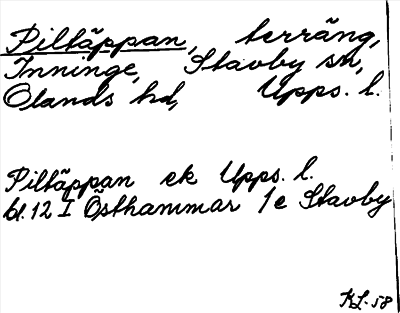 Piltäppan, terräng,
Inninge, Stavby sn,
Olands hd, Upps. l.
Piltäppan ek Upps. l.
bl. 12 I Östhammar 1e Stavby
KL-58